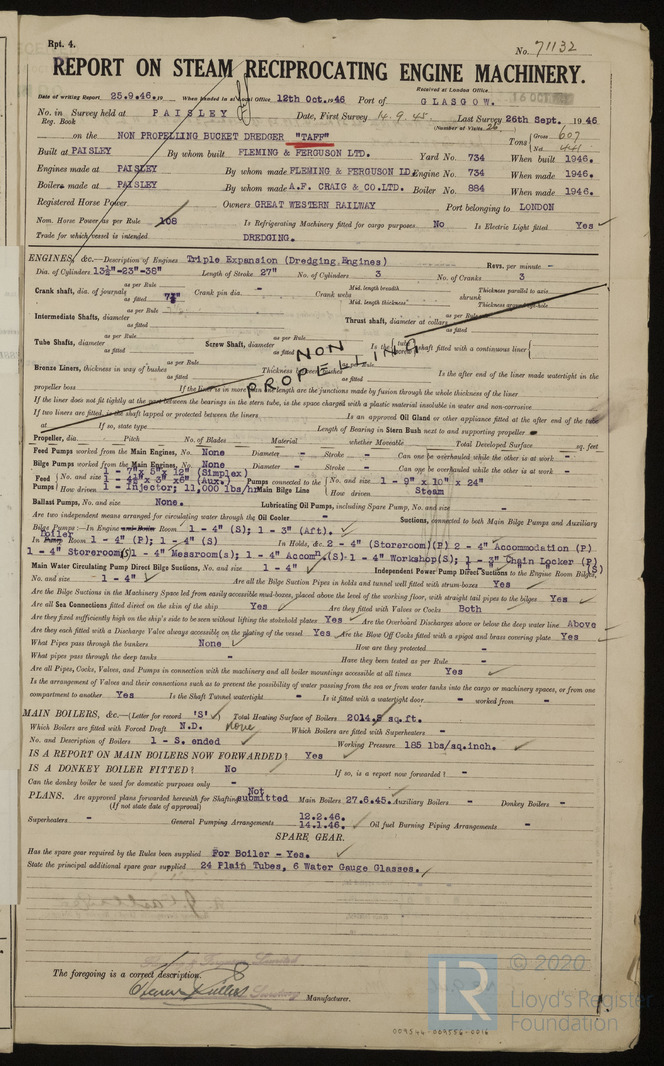 Rpt. 4.
No. 71132
REPORT ON STEAM RECIPROCATING ENGINE MACHINERY.
Received at London Office
Date of writing Report 25.9.46. 19 When handed in at Local Office 12th Oct. 1946 Port of GLASGOW.
No. in Survey held at PAISLEY Date, First Survey 14.9.45. Last Survey 26th Sept. 1946
Reg. Book (Number of Visits 26)
on the NON PROPELLING BUCKET DREDGER "TAFF" Tons Gross 607 Net 441
Built at PAISLEY By whom built FLEMING & FERGUSON LTD. Yard No. 734 When built 1946.
Engines made at PAISLEY By whom made FLEMING & FERGUSON LD. Engine No. 734 When made 1946.
Boilers made at PAISLEY By whom made A.F. CRAIG & CO.LTD. Boiler No. 884 When made 1946.
Registered Horse Power Owners GREAT WESTERN RAILWAY Port belonging to LONDON
Nom. Horse Power as per Rule 108 Is Refrigerating Machinery fitted for cargo purposes No Is Electric Light fitted Yes
Trade for which vessel is intended DREDGING.
ENGINES, &c.—Description of Engines Triple Expansion (Dredging Engines) Revs. per minute -
Dia. of Cylinders 13½"-23"-38" Length of Stroke 27" No. of Cylinders 3 No. of Cranks 3
Crank shaft, dia. of journals as per Rule as fitted 7¾" Crank pin dia. - Crank webs Mid. length breadth Mid. length thickness shrunk Thickness parallel to axis Thickness around eye-hole
Intermediate Shafts, diameter as per Rule as fitted Thrust shaft, diameter at collars as per Rule as fitted
Tube Shafts, diameter as per Rule as fitted Screw Shaft, diameter as per Rule as fitted Is the tube screw shaft fitted with a continuous liner
NON PROPELLING
Bronze Liners, thickness in way of bushes as per Rule as fitted Thickness between bushes as per Rule as fitted Is the after end of the liner made watertight in the
propeller boss If the liner is in more than one length are the junctions made by fusion through the whole thickness of the liner
If the liner does not fit tightly at the part between the bearings in the stern tube, is the space charged with a plastic material insoluble in water and non-corrosive
If two liners are fitted, is the shaft lapped or protected between the liners Is an approved Oil Gland or other appliance fitted at the after end of the tube
at If so, state type Length of Bearing in Stern Bush next to and supporting propeller
Propeller, dia. Pitch No. of Blades Material whether Moveable Total Developed Surface sq. feet
Feed Pumps worked from the Main Engines, No. None Diameter - Stroke - Can one be overhauled while the other is at work -
Bilge Pumps worked from the Main Engines, No. None Diameter - Stroke - Can one be overhauled while the other is at work -
Feed Pumps No. and size 1 - 7" x 5" x 12" (Simplex) 1 - 4½" x 3" x 6" (Aux.) Pumps connected to the Main Bilge Line No. and size 1 - 9" x 10" x 24"
How driven 1 - Injector; 11,000 lbs/hr How driven Steam
Ballast Pumps, No. and size None. Lubricating Oil Pumps, including Spare Pump, No. and size -
Are two independent means arranged for circulating water through the Oil Cooler - Suctions, connected to both Main Bilge Pumps and Auxiliary
Bilge Pumps:—In Engine and Boiler Room 1 - 4" (S); 1 - 3" (Aft).
Boiler
In Pump Room 1 - 4" (P); 1 - 4" (S) In Holds, &c. 2 - 4" (Storeroom)(P) 2 - 4" Accommodation (P)
1 - 4" Storeroom(S) 1 - 4" Messroom(s); 1 - 4" Accomn.(S). 1 - 4" Workshop(S); 1 - 3" Chain Locker (P)
Main Water Circulating Pump Direct Bilge Suctions, No. and size 1 - 4" Independent Power Pump Direct Suctions to the Engine Room Bilges, (S)
No. and size 1 - 4" Are all the Bilge Suction Pipes in holds and tunnel well fitted with strum-boxes Yes
Are the Bilge Suctions in the Machinery Space led from easily accessible mud-boxes, placed above the level of the working floor, with straight tail pipes to the bilges Yes
Are all Sea Connections fitted direct on the skin of the ship Yes Are they fitted with Valves or Cocks Both
Are they fixed sufficiently high on the ship's side to be seen without lifting the stokehold plates Yes Are the Overboard Discharges above or below the deep water line Above
Are they each fitted with a Discharge Valve always accessible on the plating of the vessel Yes Are the Blow Off Cocks fitted with a spigot and brass covering plate Yes
What Pipes pass through the bunkers None How are they protected -
What pipes pass through the deep tanks - Have they been tested as per Rule -
Are all Pipes, Cocks, Valves, and Pumps in connection with the machinery and all boiler mountings accessible at all times Yes
Is the arrangement of Valves and their connections such as to prevent the possibility of water passing from the sea or from water tanks into the cargo or machinery spaces, or from one
compartment to another Yes Is the Shaft Tunnel watertight - Is it fitted with a watertight door - worked from -
MAIN BOILERS, &c.—(Letter for record 'S') Total Heating Surface of Boilers 2014.5 sq.ft.
Which Boilers are fitted with Forced Draft N.D. none Which Boilers are fitted with Superheaters -
No. and Description of Boilers 1 - S. ended Working Pressure 185 lbs/sq.inch.
IS A REPORT ON MAIN BOILERS NOW FORWARDED? Yes
IS A DONKEY BOILER FITTED? No If so, is a report now forwarded? -
Can the donkey boiler be used for domestic purposes only -
PLANS. Are approved plans forwarded herewith for Shafting Not submitted Main Boilers 27.6.45. Auxiliary Boilers - Donkey Boilers -
(If not state date of approval)
Superheaters - General Pumping Arrangements 12.2.46. 14.1.46. Oil fuel Burning Piping Arrangements -
SPARE GEAR.
Has the spare gear required by the Rules been supplied For Boiler - Yes.
State the principal additional spare gear supplied 24 Plain Tubes, 6 Water Gauge Glasses.
The foregoing is a correct description.
Manufacturer.
LR © 2020
Lloyd's Register
Foundation
009546-009556-0016